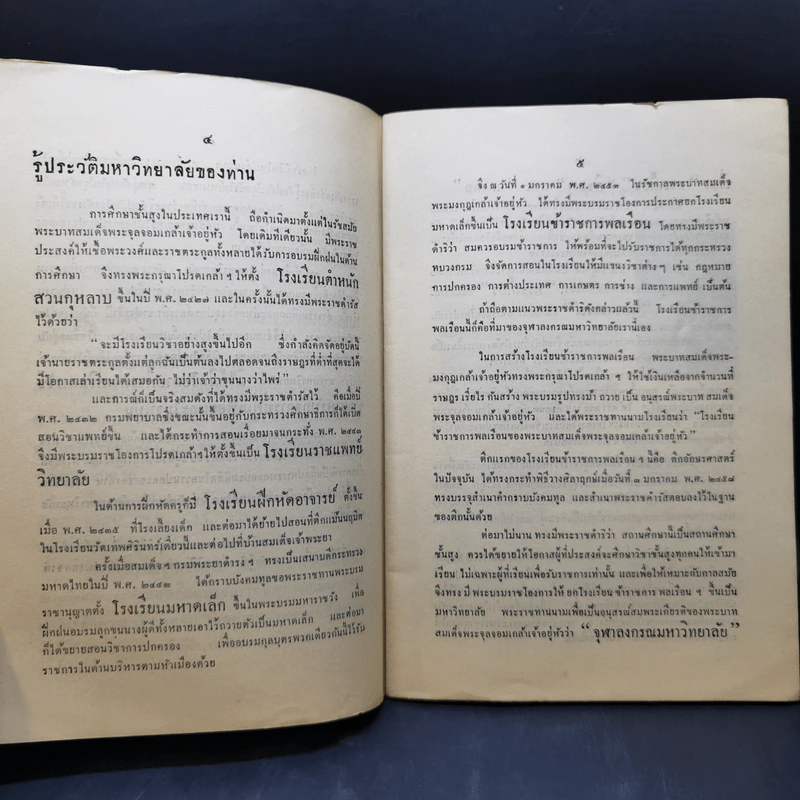 ๔
รู้ประวัติมหาวิทยาลัยของท่าน
การศึกษาชั้นสูงในประเทศเรานี้ ถือกำเนิดมาตั้งแต่ในรัชสมัย
พระบาทสมเด็จพระจุลจอมเกล้าเจ้าอยู่หัว โดยเดิมทีเดียวนั้น มีพระราช
ประสงค์ให้เชื้อพระวงศ์และราชตระกูลทั้งหลายได้รับการอบรมฝึกฝนในด้าน
การศึกษา จึงทรงพระกรุณาโปรดเกล้า ฯ ให้ตั้ง โรงเรียนตำหนัก
สวนกุหลาบ ขึ้นในปี พ.ศ. ๒๔๒๗ และในครั้งนั้นได้ทรงมีพระราชดำรัส
ไว้ด้วยว่า
“จะมีโรงเรียนวิชาอย่างสูงขึ้นไปอีก ซึ่งกำลังคิดจัดอยู่บัดนี้
เจ้านายราชตระกูลตั้งแต่ลูกฉันเป็นต้นลงไปตลอดจนถึงราษฎรที่ต่ำที่สุดจะได้
มีโอกาสเล่าเรียนได้เสมอกัน ไม่ว่าเจ้าว่าขุนนางว่าไพร่”
และการณ์ก็เป็นจริงสมดังที่ได้ทรงมีพระราชดำรัสไว้ คือเมื่อปี
พ.ศ. ๒๔๓๒ กรมพยาบาลซึ่งขณะนั้นขึ้นอยู่กับกระทรวงศึกษาธิการก็ได้เปิด
สอนวิชาแพทย์ขึ้น และได้กระทำการสอนเรื่อยมาจนกระทั่ง พ.ศ. ๒๔๔๓
จึงมีพระบรมราชโองการโปรดเกล้าฯให้ตั้งขึ้นเป็น โรงเรียนราชแพทย์
วิทยาลัย
ในด้านการฝึกหัดครูก็มี โรงเรียนฝึกหัดอาจารย์ ตั้งขึ้น
เมื่อ พ.ศ. ๒๔๓๕ ที่โรงเลี้ยงเด็ก และต่อมาได้ย้ายไปสอนที่ตึกแม้นนฤมิต
ในโรงเรียนวัดเทพศิรินทร์เดี๋ยวนี้และต่อไปที่บ้านสมเด็จเจ้าพระยา
ครั้งเมื่อสมเด็จ ฯ กรมพระยาดำรง ฯ ทรงเป็นเสนาบดีกระทรวง
มหาดไทยในปี พ.ศ. ๒๔๔๒ ได้กราบบังคมทูลขอพระราชทานพระบรม
ราชานุญาตตั้ง โรงเรียนมหาดเล็ก ขึ้นในพระบรมมหาราชวัง เพื่อ
ฝึกฝนอบรมลูกขุนนางผู้ดีทั้งหลายเอาไว้ถวายตัวเป็นมหาดเล็ก และต่อมา
ก็ได้ขยายสอนวิชาการปกครอง เพื่ออบรมกุลบุตรพวกเดียวกันนี้ไว้รับ
ราชการในด้านบริหารตามหัวเมืองด้วย
๕
จึง ณ วันที่ ๑ มกราคม พ.ศ. ๒๔๕๓ ในรัชกาลพระบาทสมเด็จ
พระมงกุฎเกล้าเจ้าอยู่หัว ได้ทรงมีพระบรมราชโองการประกาศยกโรงเรียน
มหาดเล็กขึ้นเป็น โรงเรียนข้าราชการพลเรือน โดยทรงมีพระราช
ดำริว่า สมควรอบรมข้าราชการ ให้พร้อมที่จะไปรับราชการได้ทุกกระทรวง
ทบวงกรม จึงจัดการสอนในโรงเรียนให้มีแขนงวิชาต่างๆ เช่น กฎหมาย
การปกครอง การต่างประเทศ การเกษตร การช่าง และการแพทย์ เป็นต้น
ถ้าถือตามแนวพระราชดำริดังกล่าวแล้วนี้ โรงเรียนข้าราชการ
พลเรือนนี้ก็คือที่มาของจุฬาลงกรณมหาวิทยาลัยเรานี่เอง
ในการสร้างโรงเรียนข้าราชการพลเรือน พระบาทสมเด็จพระ-
มงกุฎเกล้าเจ้าอยู่หัวทรงพระกรุณาโปรดเกล้า ฯ ให้ใช้เงินเหลือจากจำนวนที่
ราษฎร เรี่ยไร กันสร้าง พระบรมรูปทรงม้า ถวาย เป็น อนุสรณ์พระบาท สมเด็จ
พระจุลจอมเกล้าเจ้าอยู่หัว และได้พระราชทานนามโรงเรียนว่า “โรงเรียน
ข้าราชการพลเรือนของพระบาทสมเด็จพระจุลจอมเกล้าเจ้าอยู่หัว”
ตึกแรกของโรงเรียนข้าราชการพลเรือน ฯ นี้คือ ตึกอักษรศาสตร์
ในปัจจุบัน ได้ทรงกระทำพิธีวางศิลาฤกษ์เมื่อวันที่ ๓ มกราคม พ.ศ. ๒๔๕๘
ทรงบรรจุสำเนาคำกราบบังคมทูล และสำเนาพระราชดำรัสตอบลงไว้ในฐาน
ของตึกนั้นด้วย
ต่อมาไม่นาน ทรงมีพระราชดำริว่า สถานศึกษานี้เป็นสถานศึกษา
ชั้นสูง ควรได้ขยายให้โอกาสผู้ที่ประสงค์จะศึกษาวิชาชั้นสูงทุกคนให้เข้ามา
เรียน ไม่เฉพาะผู้ที่เรียนเพื่อรับราชการเท่านั้น และเพื่อให้เหมาะกับกาลสมัย
จึงทรง มี พระบรมราชโองการให้ ยกโรงเรียน ข้าราชการ พลเรือน ฯ ขึ้นเป็น
มหาวิทยาลัย พระราชทานนามเพื่อเป็นอนุสรณ์สมพระเกียรติของพระบาท
สมเด็จพระจุลจอมเกล้าเจ้าอยู่หัวว่า “จุฬาลงกรณมหาวิทยาลัย”